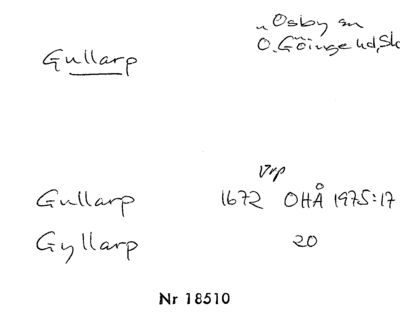 Osby sn
Gullarp Ö. Göinge hd, Sk
Vrp
Gullarp 1672 OHÅ 1975:17
Gyllarp 20
Nr 18510